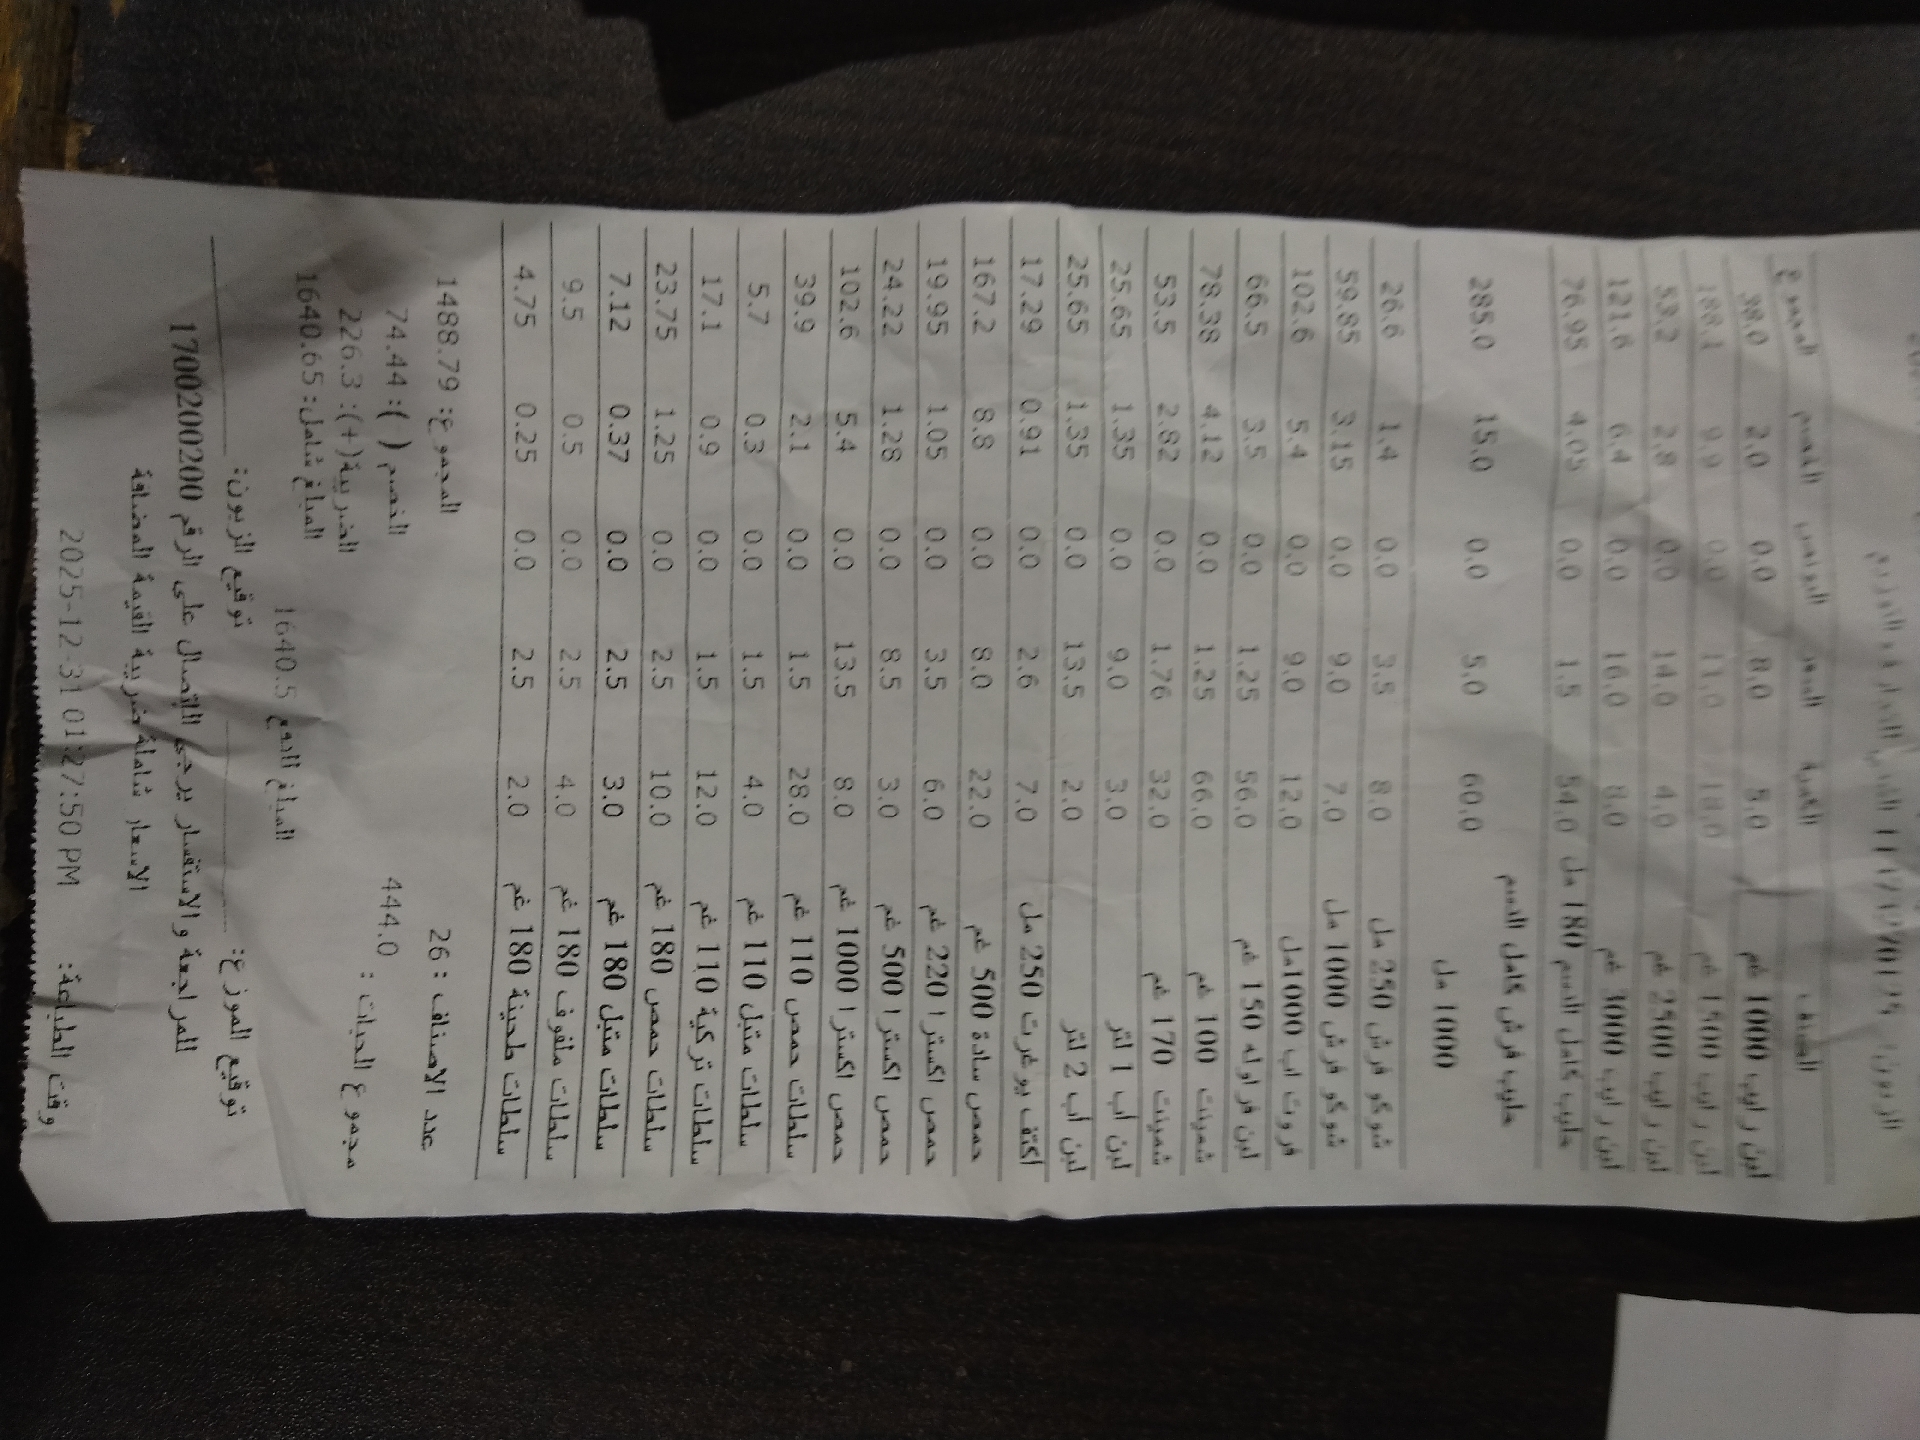 الصنف الكمية السعر البونص الخصم المجموع
لبن رايب 1000 غم 5.0 8.0 0.0 2.0 38.0
لبن رايب 1500 غم 18.0 11.0 0.0 9.9 188.1
لبن رايب 2500 غم 4.0 14.0 0.0 2.8 53.2
لبن رايب 3000 غم 8.0 16.0 0.0 6.4 121.6
حليب كامل الدسم 180 مل 54.0 1.5 0.0 4.05 76.95
حليب فرش كامل الدسم 60.0 5.0 0.0 15.0 285.0
1000 مل
شوكو فرش 250 مل 8.0 3.5 0.0 1.4 26.6
شوكو فرش 1000 مل 7.0 9.0 0.0 3.15 59.85
فروت اب 1000مل 12.0 9.0 0.0 5.4 102.6
لبن فراوله 150 غم 56.0 1.25 0.0 3.5 66.5
شمينت 100 غم 66.0 1.25 0.0 4.12 78.38
شمينت 170 غم 32.0 1.76 0.0 2.82 53.5
لبن أب 1 لتر 3.0 9.0 0.0 1.35 25.65
لبن أب 2 لتر 2.0 13.5 0.0 1.35 25.65
اكتف يوغرت 250 مل 7.0 2.6 0.0 0.91 17.29
حمص سادة 500 غم 22.0 8.0 0.0 8.8 167.2
حمص اكسترا 220 غم 6.0 3.5 0.0 1.05 19.95
حمص اكسترا 500 غم 3.0 8.5 0.0 1.28 24.22
حمص اكسترا 1000 غم 8.0 13.5 0.0 5.4 102.6
سلطات حمص 110 غم 28.0 1.5 0.0 2.1 39.9
سلطات متبل 110 غم 4.0 1.5 0.0 0.3 5.7
سلطات تركية 110 غم 12.0 1.5 0.0 0.9 17.1
سلطات حمص 180 غم 10.0 2.5 0.0 1.25 23.75
سلطات متبل 180 غم 3.0 2.5 0.0 0.37 7.12
سلطات ملفوف 180 غم 4.0 2.5 0.0 0.5 9.5
سلطات طحينة 180 غم 2.0 2.5 0.0 0.25 4.75
عدد الاصناف : 26 المجموع: 1488.79
مجموع الحبات : 444.0 الخصم ( ): 74.44
الضريبة(+): 226.3
المبلغ شامل: 1640.65
المبلغ المدفوع 1640.5
توقيع الموزع: توقيع الزبون:
للمراجعة و الاستفسار يرجى الاتصال على الرقم 1700200200
الاسعار شاملة ضريبة القيمة المضافة
وقت الطباعة: 2025-12-31 01:27:50 PM